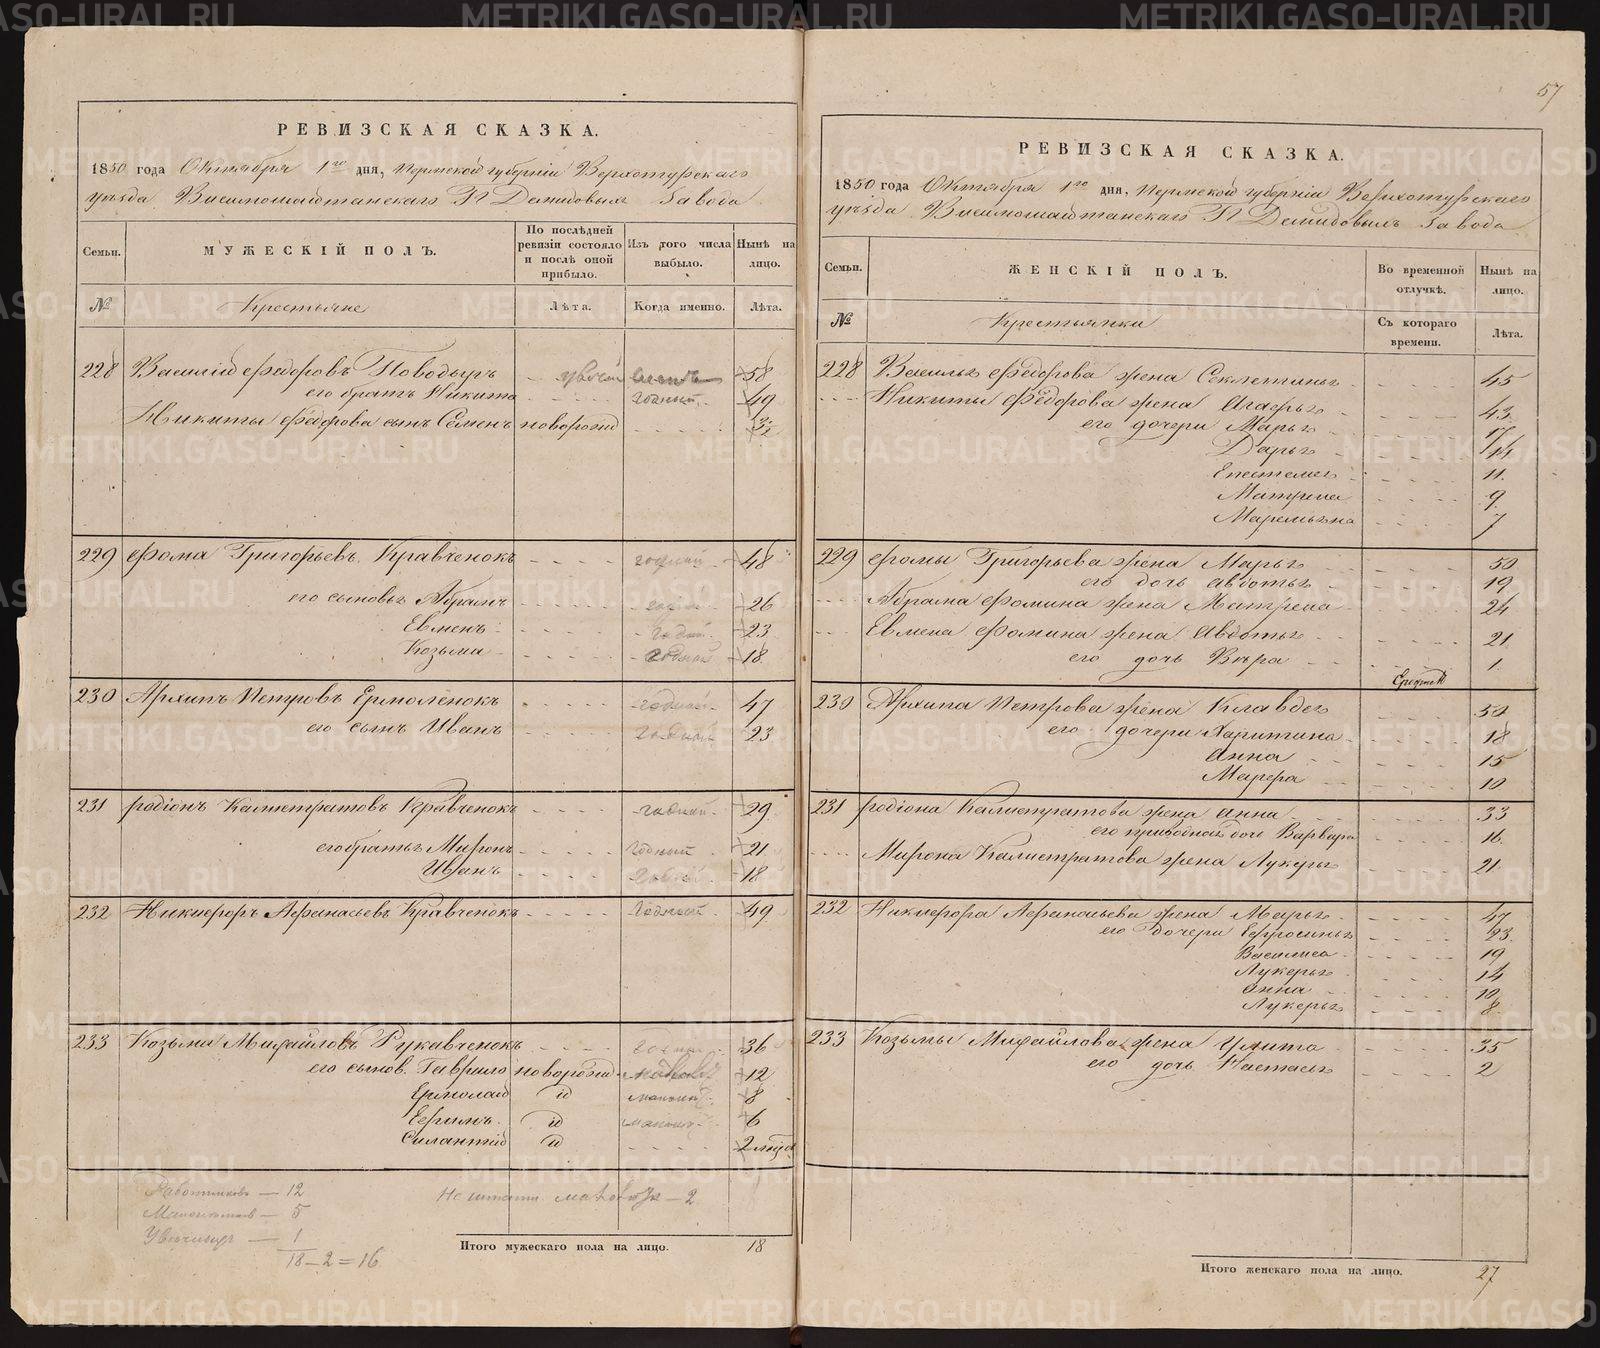 РЕВИЗСКАЯ СКАЗКА.
1850 года Октября 1го дня, Пермской губерніи Верхотурскаго
уѣзда Висимошайтанскаго Г.г. Демидовыхъ Завода
Семьи.
МУЖЕСКІЙ ПОЛЪ.
По послѣдней ревизіи состояло и послѣ оной прибыло.
Изъ того числа выбыло.
Нынѣ на лицо.
№
Крестьяне
Лѣта.
Когда именно.
Лѣта.
228 Василій Федоровъ Поводыръ 58
его братъ Никита годный 49
Никиты Федорова сынъ Семенъ новорожд
229 Фома Григорьевъ Кравченокъ годный 48
его сыновья Абрамъ 26
Евменъ годный 23
Козьма годный 18
230 Архипъ Петровъ Ермоленокъ годный 47
его сынъ Иванъ годный 23
231 Родіонъ Калистратовъ Кравченокъ годный 29
его братья Миронъ годный 21
Иванъ годный 18
232 Никифоръ Афанасьевъ Кравченокъ годный 49
233 Козьма Михайловъ Рукавченокъ 36
его сынов. Гаврило новорожд. 12
Ермолай id 8
Ефимъ id 6
Силантій id 2
Работниковъ — 12
— 5
— 1
18 – 2 = 16
— 2
Итого мужескаго пола на лицо. 18
57
РЕВИЗСКАЯ СКАЗКА.
1850 года Октября 1го дня, Пермской губерніи Верхотурскаго
уѣзда Висимошайтанскаго Г.г. Демидовыхъ Завода
Семьи.
ЖЕНСКІЙ ПОЛЪ.
Во временной отлучкѣ.
Нынѣ на лицо.
№
Крестьянки
Съ котораго времени.
Лѣта.
228 Василья Федорова жена Секлетинья 45
Никиты Федорова жена Агафья 43
его дочери Марья 17
Дарья 14
Епестемея 11
Матрена 9
Маремьяна 7
229 Фомы Григорьева жена Марья 50
его дочь Авдотья 19
Абрама Фомина жена Матрена 24
Евмена Фомина жена Авдотья 21
его дочь Вѣра 1
230 Архипа Петрова жена Клавдея 50
его дочери Харитина 18
Анна 15
Марфа 10
231 Родіона Калистратова жена Анна 33
его приводная дочь Варвара 16
Мирона Калистратова жена Лукерья 21
232 Никифора Афанасьева жена Марья 47
его дочери Ефросинья 23
Василиса 19
Лукерья 14
Анна 10
Лукерья 8
233 Козьмы Михайлова жена Улита 35
его дочь Настасья 2
Итого женскаго пола на лицо. 27
METRIKI.GASO-URAL.RU